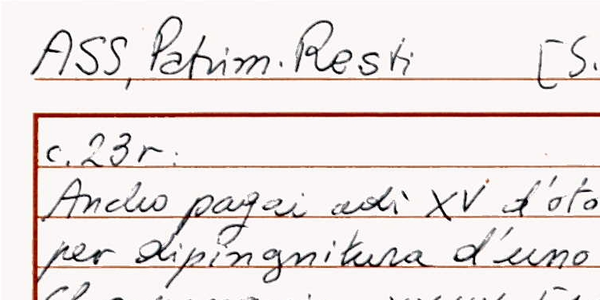 ASS, Patrim. Resti [S.
c. 23r:
Ancho pagai adì XV d'oto
per dipingnitura d'uno